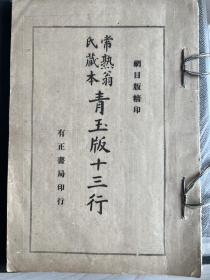 網目版精印
常熟翁
氏藏本
青玉版十三行
有正書局印行